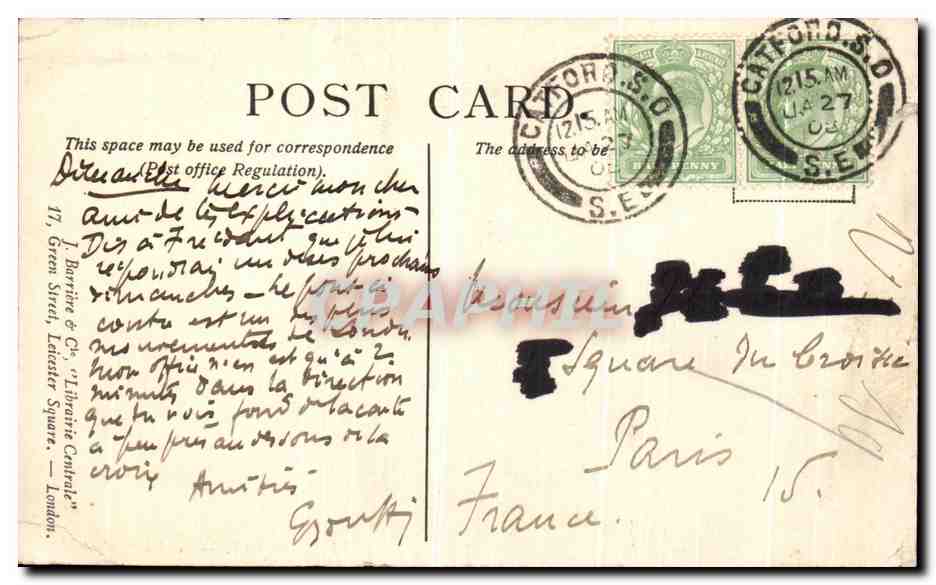 POST CARD
This space may be used for correspondence
(Post office Regulation).
The address to be
Dimanche merci mon cher
ami de tes explications
Dis à que je lui
répondrai un des prochains
dimanches — le pont ci
contre est un des plus
mouvementés de Londres
Mon office n'en est qu'à 2
minutes dans la direction
que tu vois fond de la carte
à peu près au dessous de la
croix
Amitiés
J. Barrière & Cie, "Librairie Centrale"
17, Green Street, Leicester Square. — London.
CATFORD.S.O
12.15.AM
JA 27
08
S.E.
CATFORD.S.O
12.15.AM
JA 27
08
S.E.
HALFPENNY
HALFPENNY
Monsieur
Square du Croisic
Paris
15.
France.
CPAPHIL